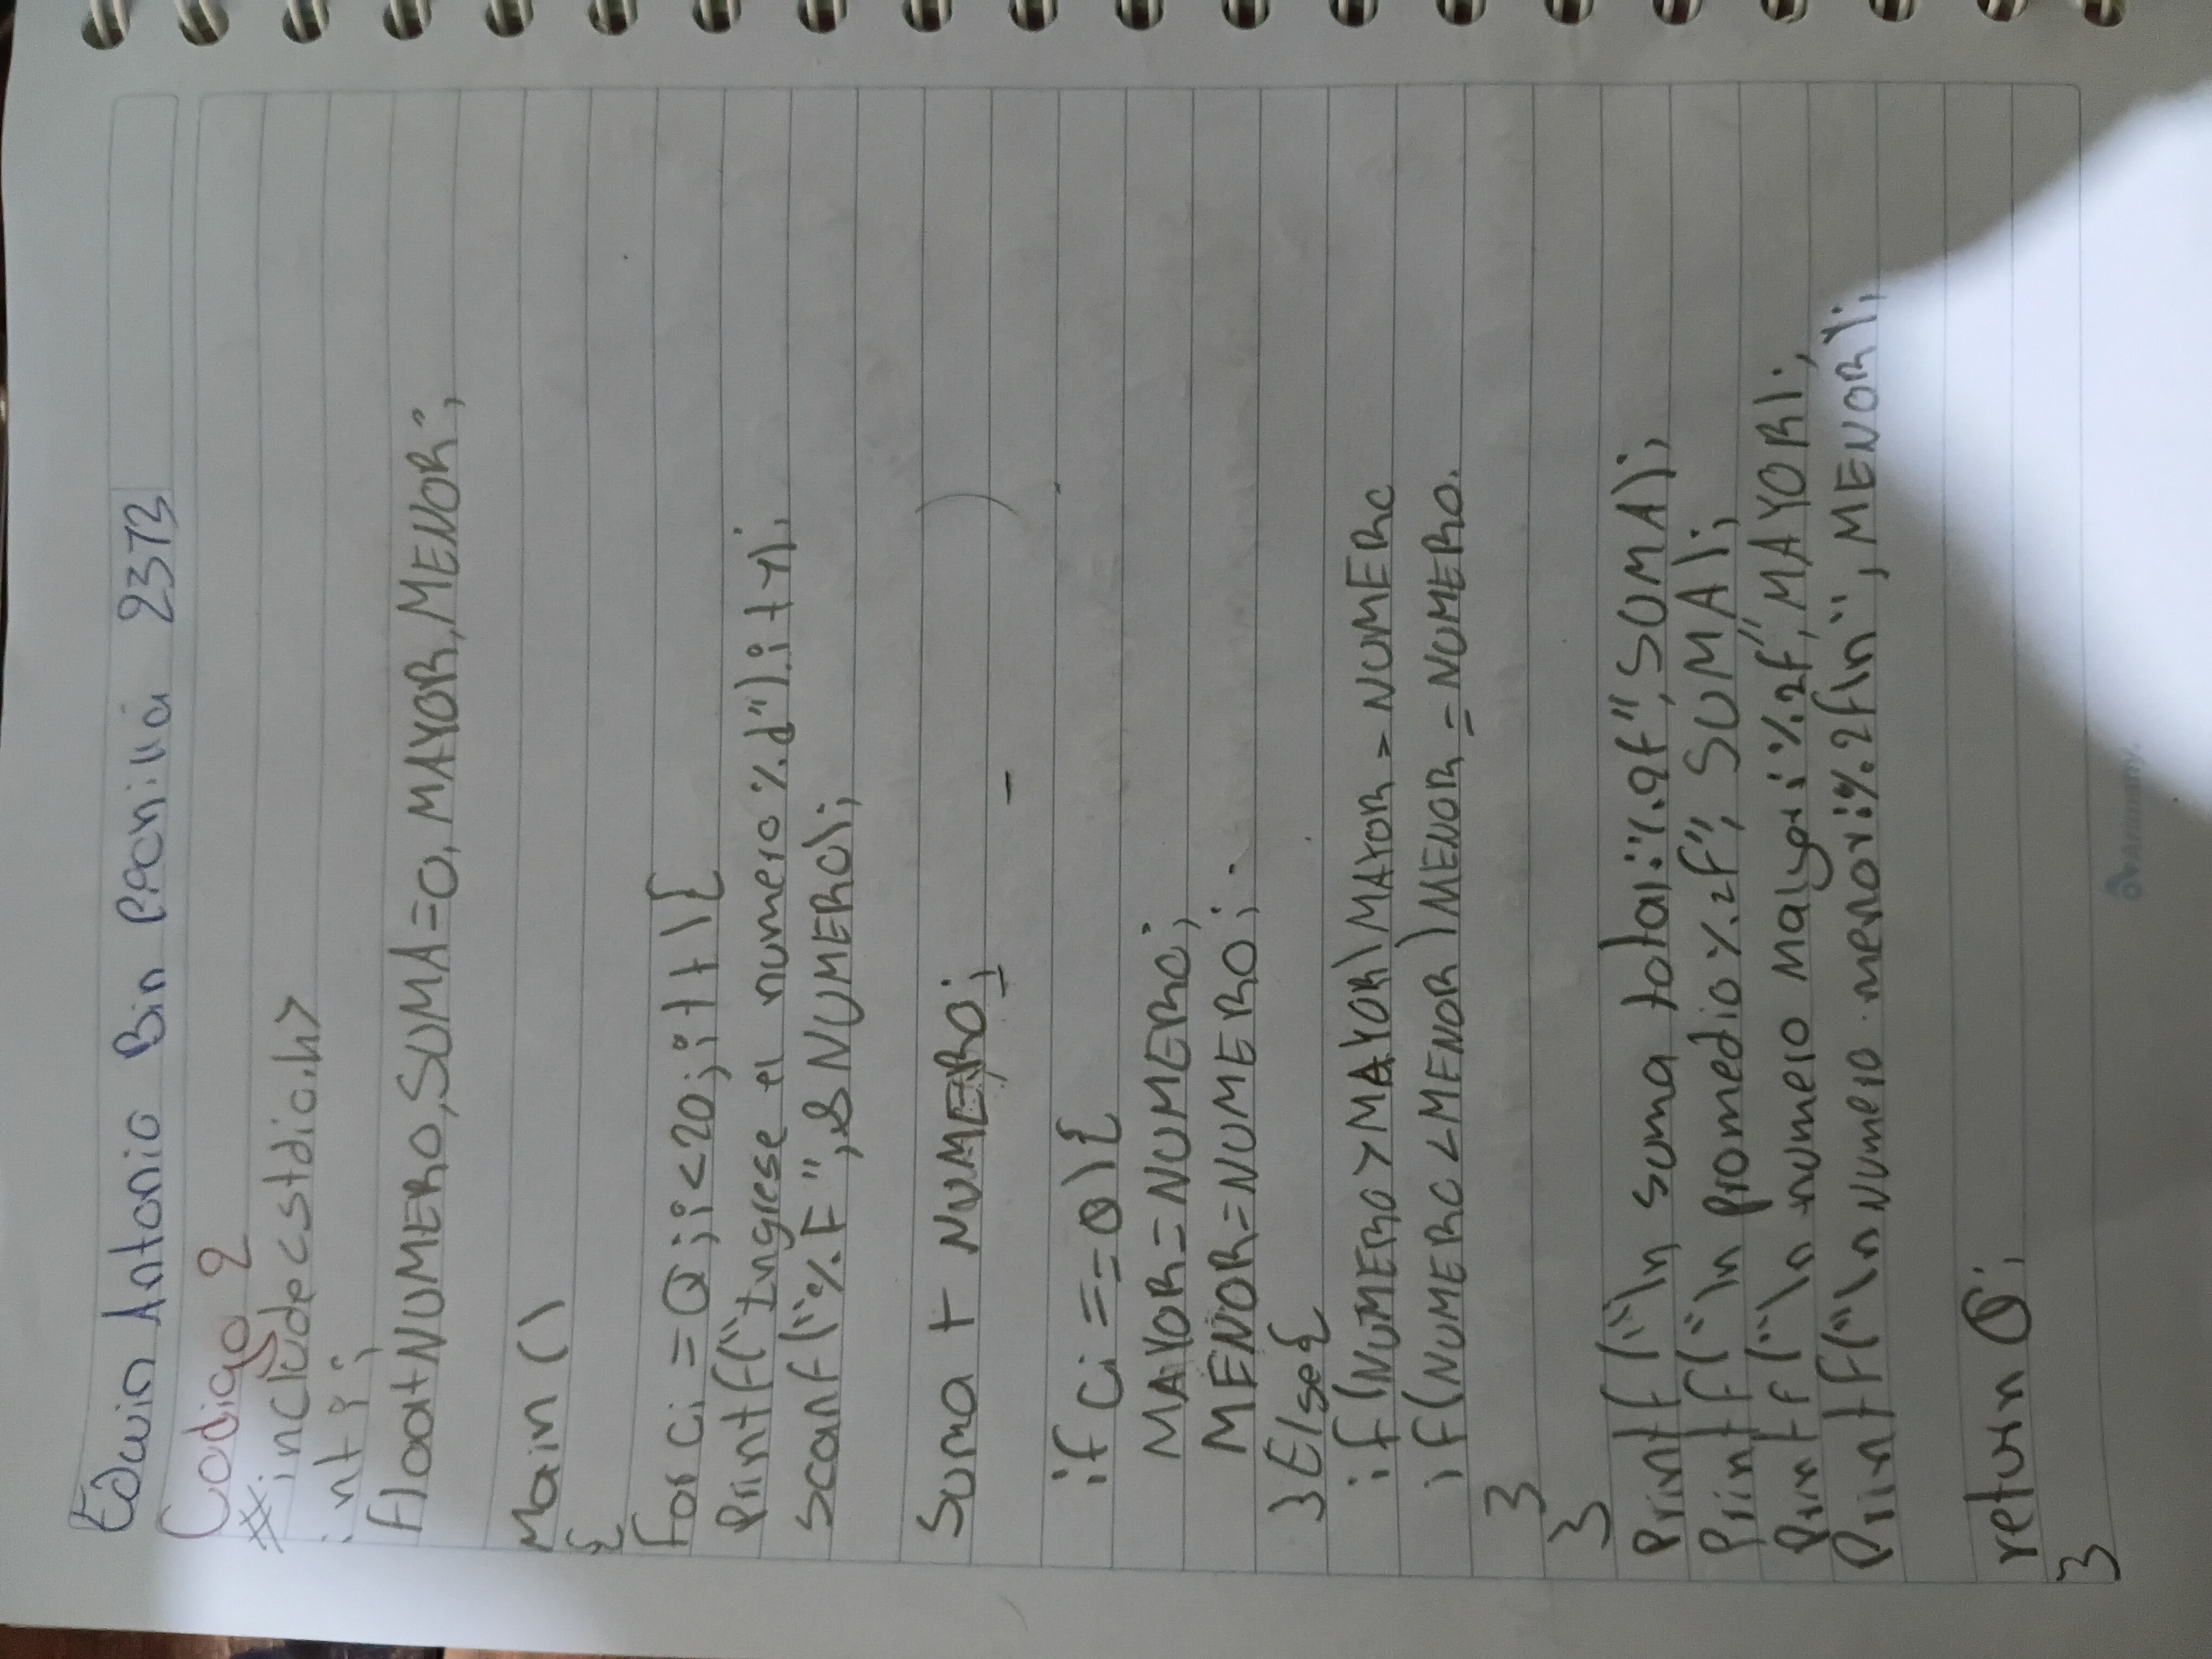 Edwin Antonio Bin Pacniná 2373
Codigo 2
#include<stdio.h>
int i;
float NUMERO,SUMA=0, MAYOR,MENOR;
Main ()
{
for (i=0;i<20;i++){
Printf("Ingrese el numero %.d").i+1);
Scanf("%F",&NUMERO);
Suma + NUMERO;
if (i==0){
MAYOR=NUMERO;
MENOR=NUMERO;
}Else{
if(NUMERO>MAYOR)MAYOR=NUMERO
if(NUMERO<MENOR)MENOR=NUMERO.
}
}
Printf("\n suma total:%.2f",SUMA);
Printf("\n promedio%.2f", SUMA);
Printf("\n numero malyor:%.2f",MAYOR);
Printf("\n numero menor:%.2f\n",MENOR);
return 0;
}